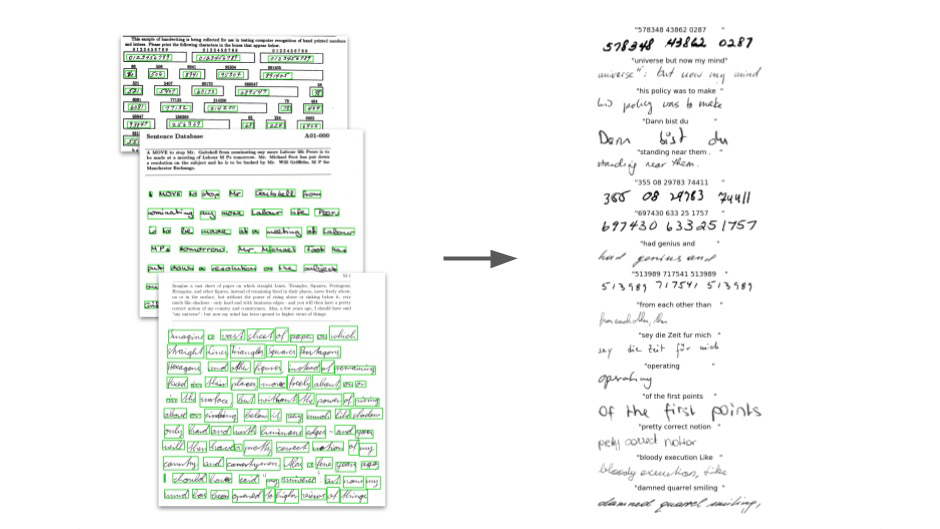 This sample of handwriting is being collected for use in testing computer recognition of hand printed numbers
and letters. Please print the following characters in the boxes that appear below.
0 1 2 3 4 5 6 7 8 9 0 1 2 3 4 5 6 7 8 9 0 1 2 3 4 5 6 7 8 9
0123456789 0123456789 0123456789
Sentence Database A01-000
A MOVE to stop Mr. Gaitskell from nominating any more Labour life Peers is to
be made at a meeting of Labour M Ps tomorrow. Mr. Michael Foot has put down
a resolution on the subject and he is to be backed by Mr. Will Griffiths, M P for
Manchester Exchange.
A MOVE to stop Mr. Gaitskell from
nominating any more Labour life Peers
is to be made at a meeting of Labour
MPs tomorrow. Mr. Michael Foot has
put down a resolution on the subject
Imagine a vast sheet of paper on which straight Lines, Triangles, Squares, Pentagons,
Hexagons, and other figures, instead of remaining fixed in their places, move freely about,
on or in the surface, but without the power of rising above or sinking below it, very
much like shadows - only hard and with luminous edges - and you will then have a pretty
correct notion of my country and countrymen. Alas, a few years ago, I should have said
"my universe": but now my mind has been opened to higher views of things.
Imagine a vast sheet of paper on which
straight Lines, Triangles, Squares, Pentagons,
Hexagons, and other figures, instead of remaining
fixed in their places, move freely about, on or
in the surface, but without the power of rising
above or sinking below it, very much like shadows
only hard and with luminous edges - and you
will then have a pretty correct notion of my
country and countrymen. Alas, a few years ago,
I should have said "my universe": but now my
mind has been opened to higher views of things.
"578348 43862 0287 "
578348 43862 0287
"universe but now my mind "
universe": but now my mind
"his policy was to make "
his policy was to make
"Dann bist du "
Dann bist du
"standing near them . "
standing near them.
"355 08 29783 74411 "
355 08 29783 74411
"697430 633 25 1757 "
697430 633 25 1757
"had genius and "
had genius and
"513989 717541 513989 "
513989 717541 513989
"from each other than "
from each other, than
"sey die Zeit fur mich "
sey die Zeit für mich
"operating "
operating
"of the first points "
of the first points
"pretty correct notion "
pretty correct notion
"bloody execution Like "
bloody execution, Like
"damned quarrel smiling "
damned quarrel smiling,